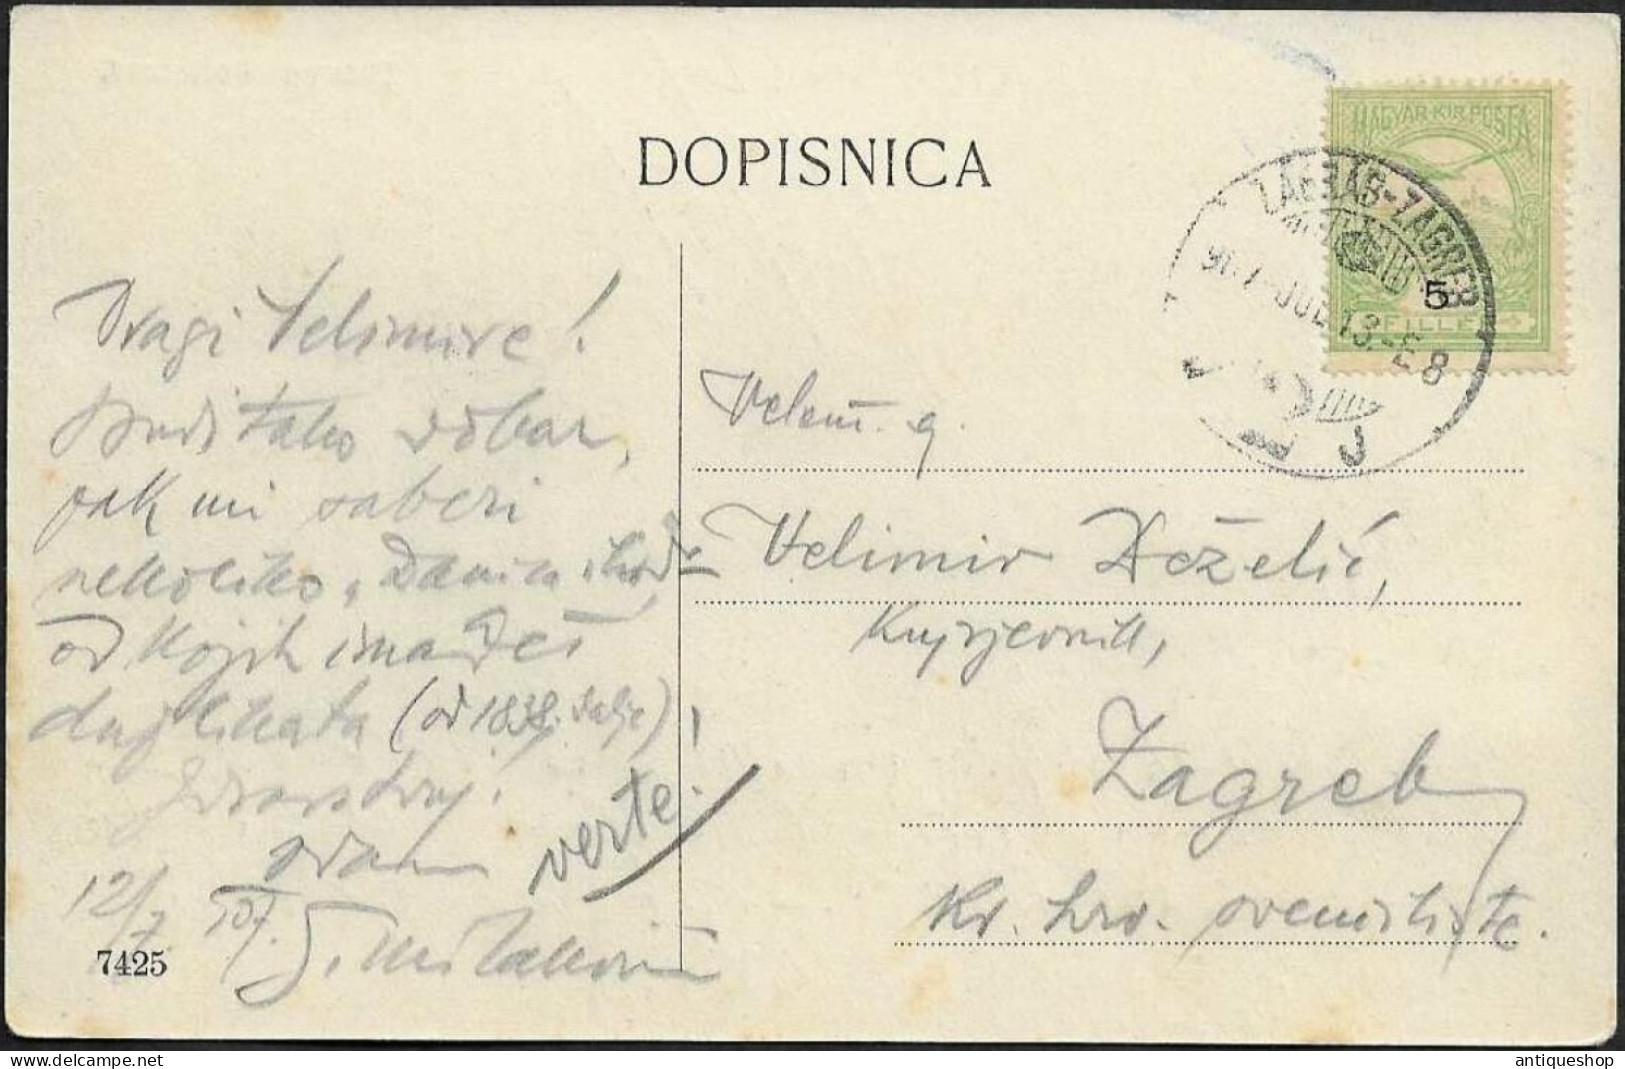 DOPISNICA
MAGYAR·KIR·POSTA
5
FILLÉR
ZÁGRÁB-ZAGREB
907 JUL 13
8
J
Dragi Velimire!
Budi tako dobar,
pak mi saberi
nekoliko „Danica
od kojih imadeš
duplikata (od 1838. dalje)!
Zdravstvuj!
odan
verte!
12/7 907.
7425
Velem. g.
Velimir Deželić,
Književnik,
Zagreb
Kr. hrv. sveučilište.
antiqueshop
https://www.delcampe.net